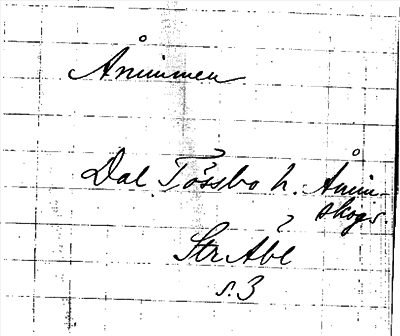 Ånimmen
Dal Tössbo h. Ånim-
skogs
Str Åbl
s. 3